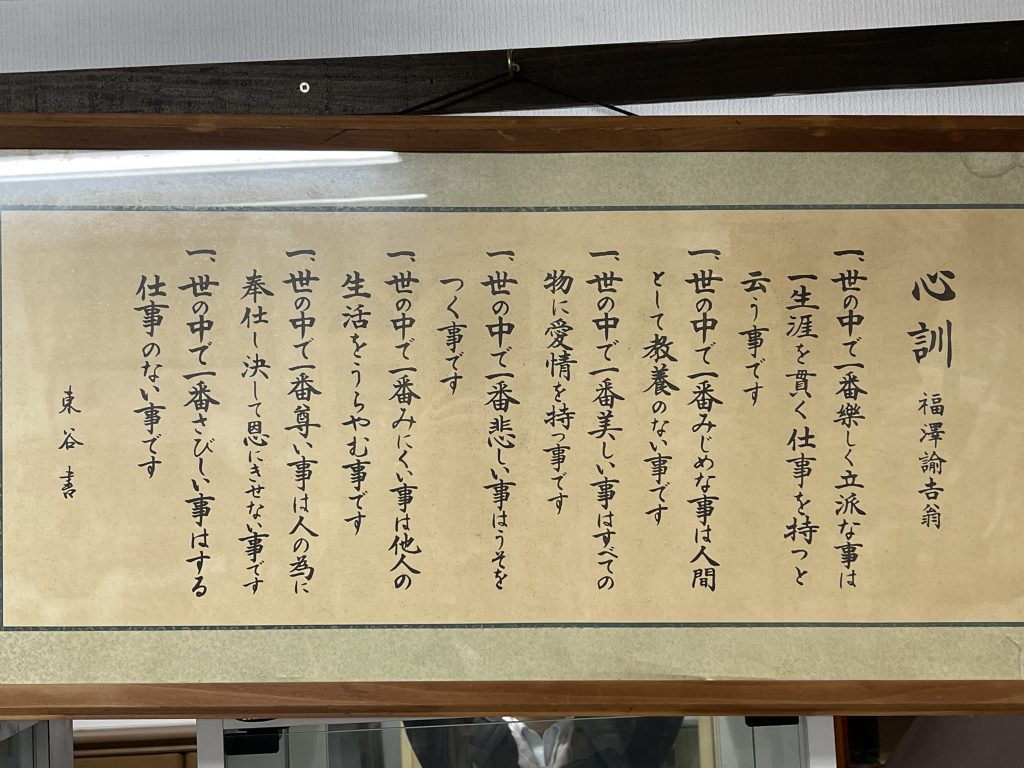 心訓　福澤諭吉翁
一、世の中で一番樂しく立派な事は
一生涯を貫く仕事を持つと
云う事です
一、世の中で一番みじめな事は人間
として教養のない事です
一、世の中で一番美しい事はすべての
物に愛情を持つ事です
一、世の中で一番悲しい事はうそを
つく事です
一、世の中で一番みにくい事は他人の
生活をうらやむ事です
一、世の中で一番尊い事は人の為に
奉仕し決して恩にきせない事です
一、世の中で一番さびしい事はする
仕事のない事です
東谷書